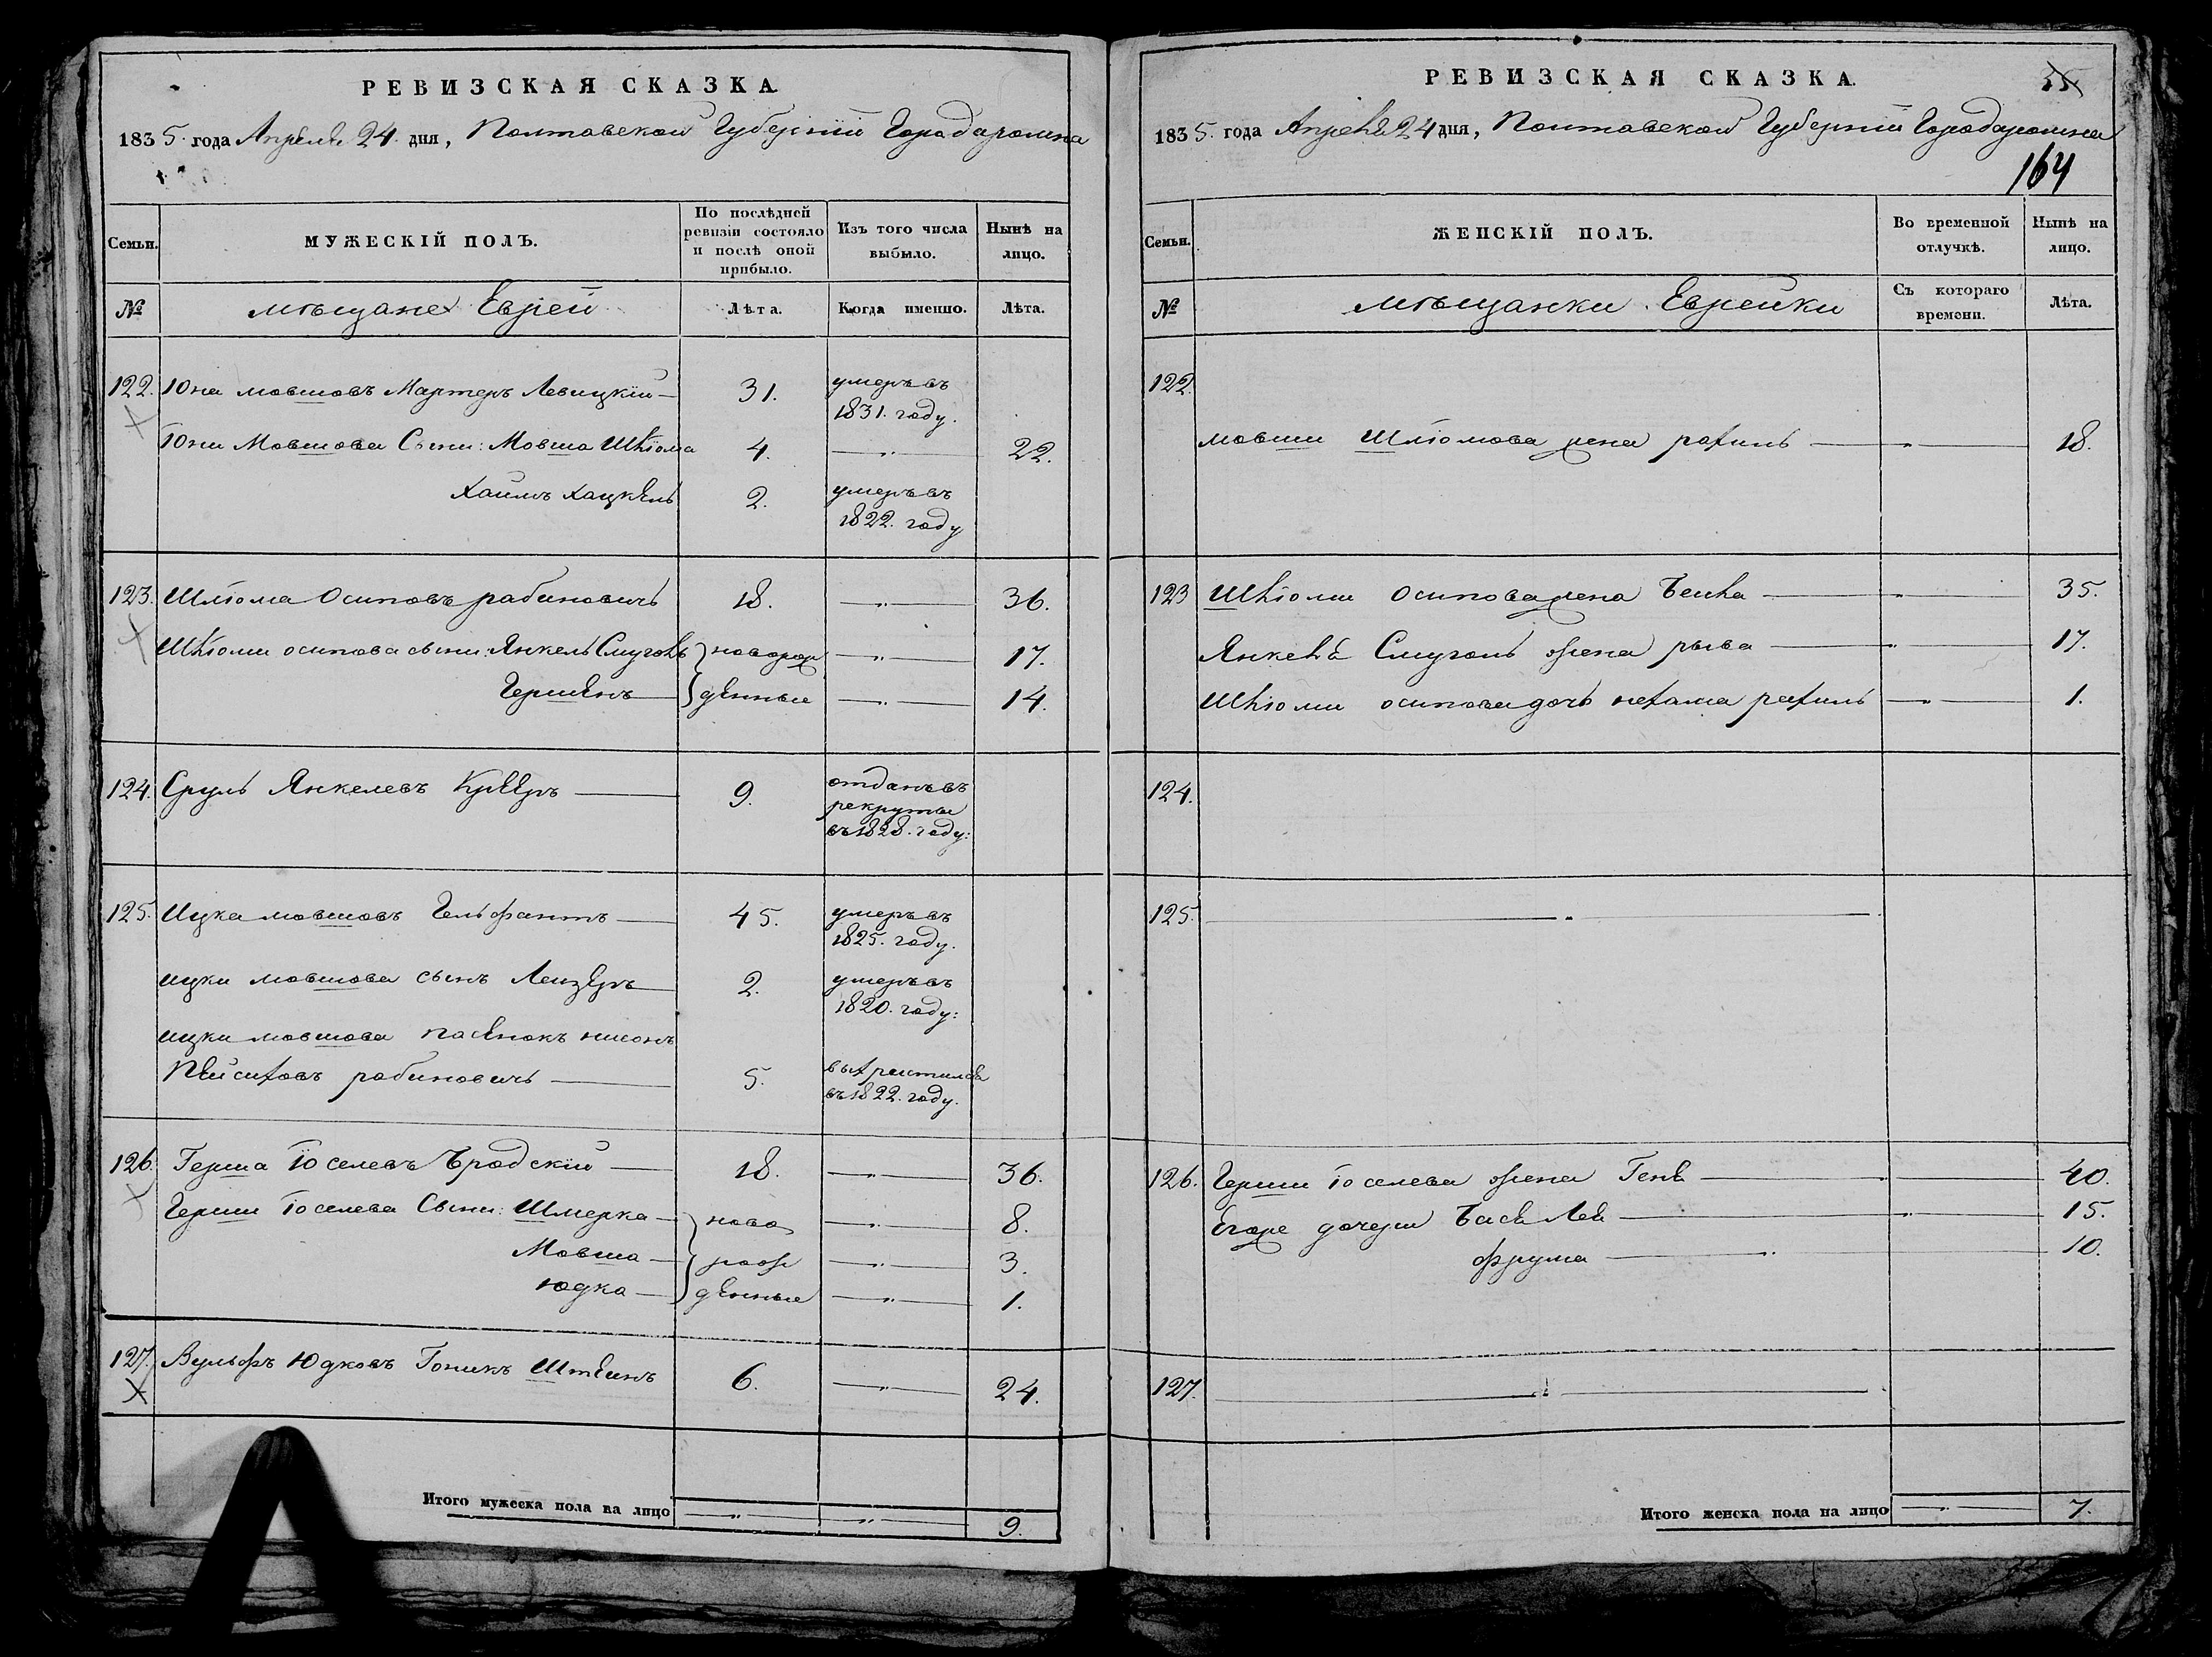 РЕВИЗСКАЯ СКАЗКА.
1835. года Апреля 24. дня, Полтавской Губернии Города ромна
Семьи.
МУЖЕСКІЙ ПОЛЪ.
По послѣдней ревизіи состояло и послѣ оной прибыло.
Изъ того числа выбыло.
Нынѣ на лицо.
№
мѣщане Еврей
Лѣта.
Когда именно.
Лѣта.
122. Юна мовшовъ Мартеръ Левицкій — 31. умеръ въ 1831. году.
Юни Мовшова Сыни: Мовша Шлiома 4. — „ — 22.
Хаимъ Хацкель 2. умеръ въ 1822. году
123. Шлiома Осиповъ рабиновичь 18. — „ — 36.
Шлiоми осипова сыни: Янкель Смуголь } новорож — „ — 17.
Гершенъ — } денные — „ — 14.
124. Сруль Янкелевъ — 9. отданъ въ рекруты въ 1828. году:
125. Ицка мовшовъ Гельфантъ — 45. умеръ въ 1825. году.
ицки мовшова сынъ Лейзеръ — 2. умеръ въ 1820. году:
ицки мовшова пасенокъ нисонъ
Пейсиховъ рабиновичь — 5. выхрестился въ 1822. году.
126. Герша Iоселевъ Бродскій — 18. — „ — 36.
Герши Iоселева Сыни: Шмерка — } ново — „ — 8.
Мовша — } рож — „ — 3.
Юдка — } денные — „ — 1.
127. Вульфъ Юдковъ Гоникъ Штеинъ 6. — „ — 24.
Итого мужеска пола на лицо — „ — — „ — 9.
РЕВИЗСКАЯ СКАЗКА.
35
1835. года Апреля 24 дня, Полтавской Губернии Города ромна
164
Семьи.
ЖЕНСКІЙ ПОЛЪ.
Во временной отлучкѣ.
Нынѣ на лицо.
№
мѣщанки Еврейки
Съ котораго времени.
Лѣта.
122.
мовши Шлiомова жена рахиль — „ — 18.
123 Шлiоми Осипова жена Беила — „ — 35.
Янкеля Смуголь жена рыва — „ — 17.
Шлiоми осипова дочь нехама рахиль — „ — 1.
124.
125. — „ —
126. Герши Iоселева жена Геня — 40.
Егоже дочери Бася Лея — „ — 15.
фрума — „ — 10.
127. — „ —
Итого женска пола на лицо — „ — 7.